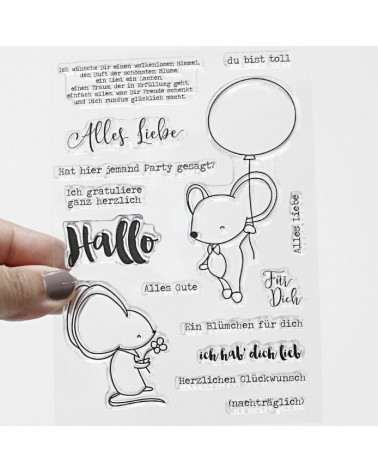 Ich wünsche Dir einen wolkenlosen Himmel,
den Duft der schönsten Blume,
ein Lied ein Lachen,
einen Traum, der in Erfüllung geht,
einfach alles, was Dir Freude schenkt
und Dich rundum glücklich macht.
du bist toll
Alles Liebe
Hat hier jemand Party gesagt?
Ich gratuliere
ganz herzlich
Alles Liebe
Hallo
Für
Dich
Alles Gute
Ein Blümchen für dich
ich hab' dich lieb
Herzlichen Glückwunsch
(nachträglich)